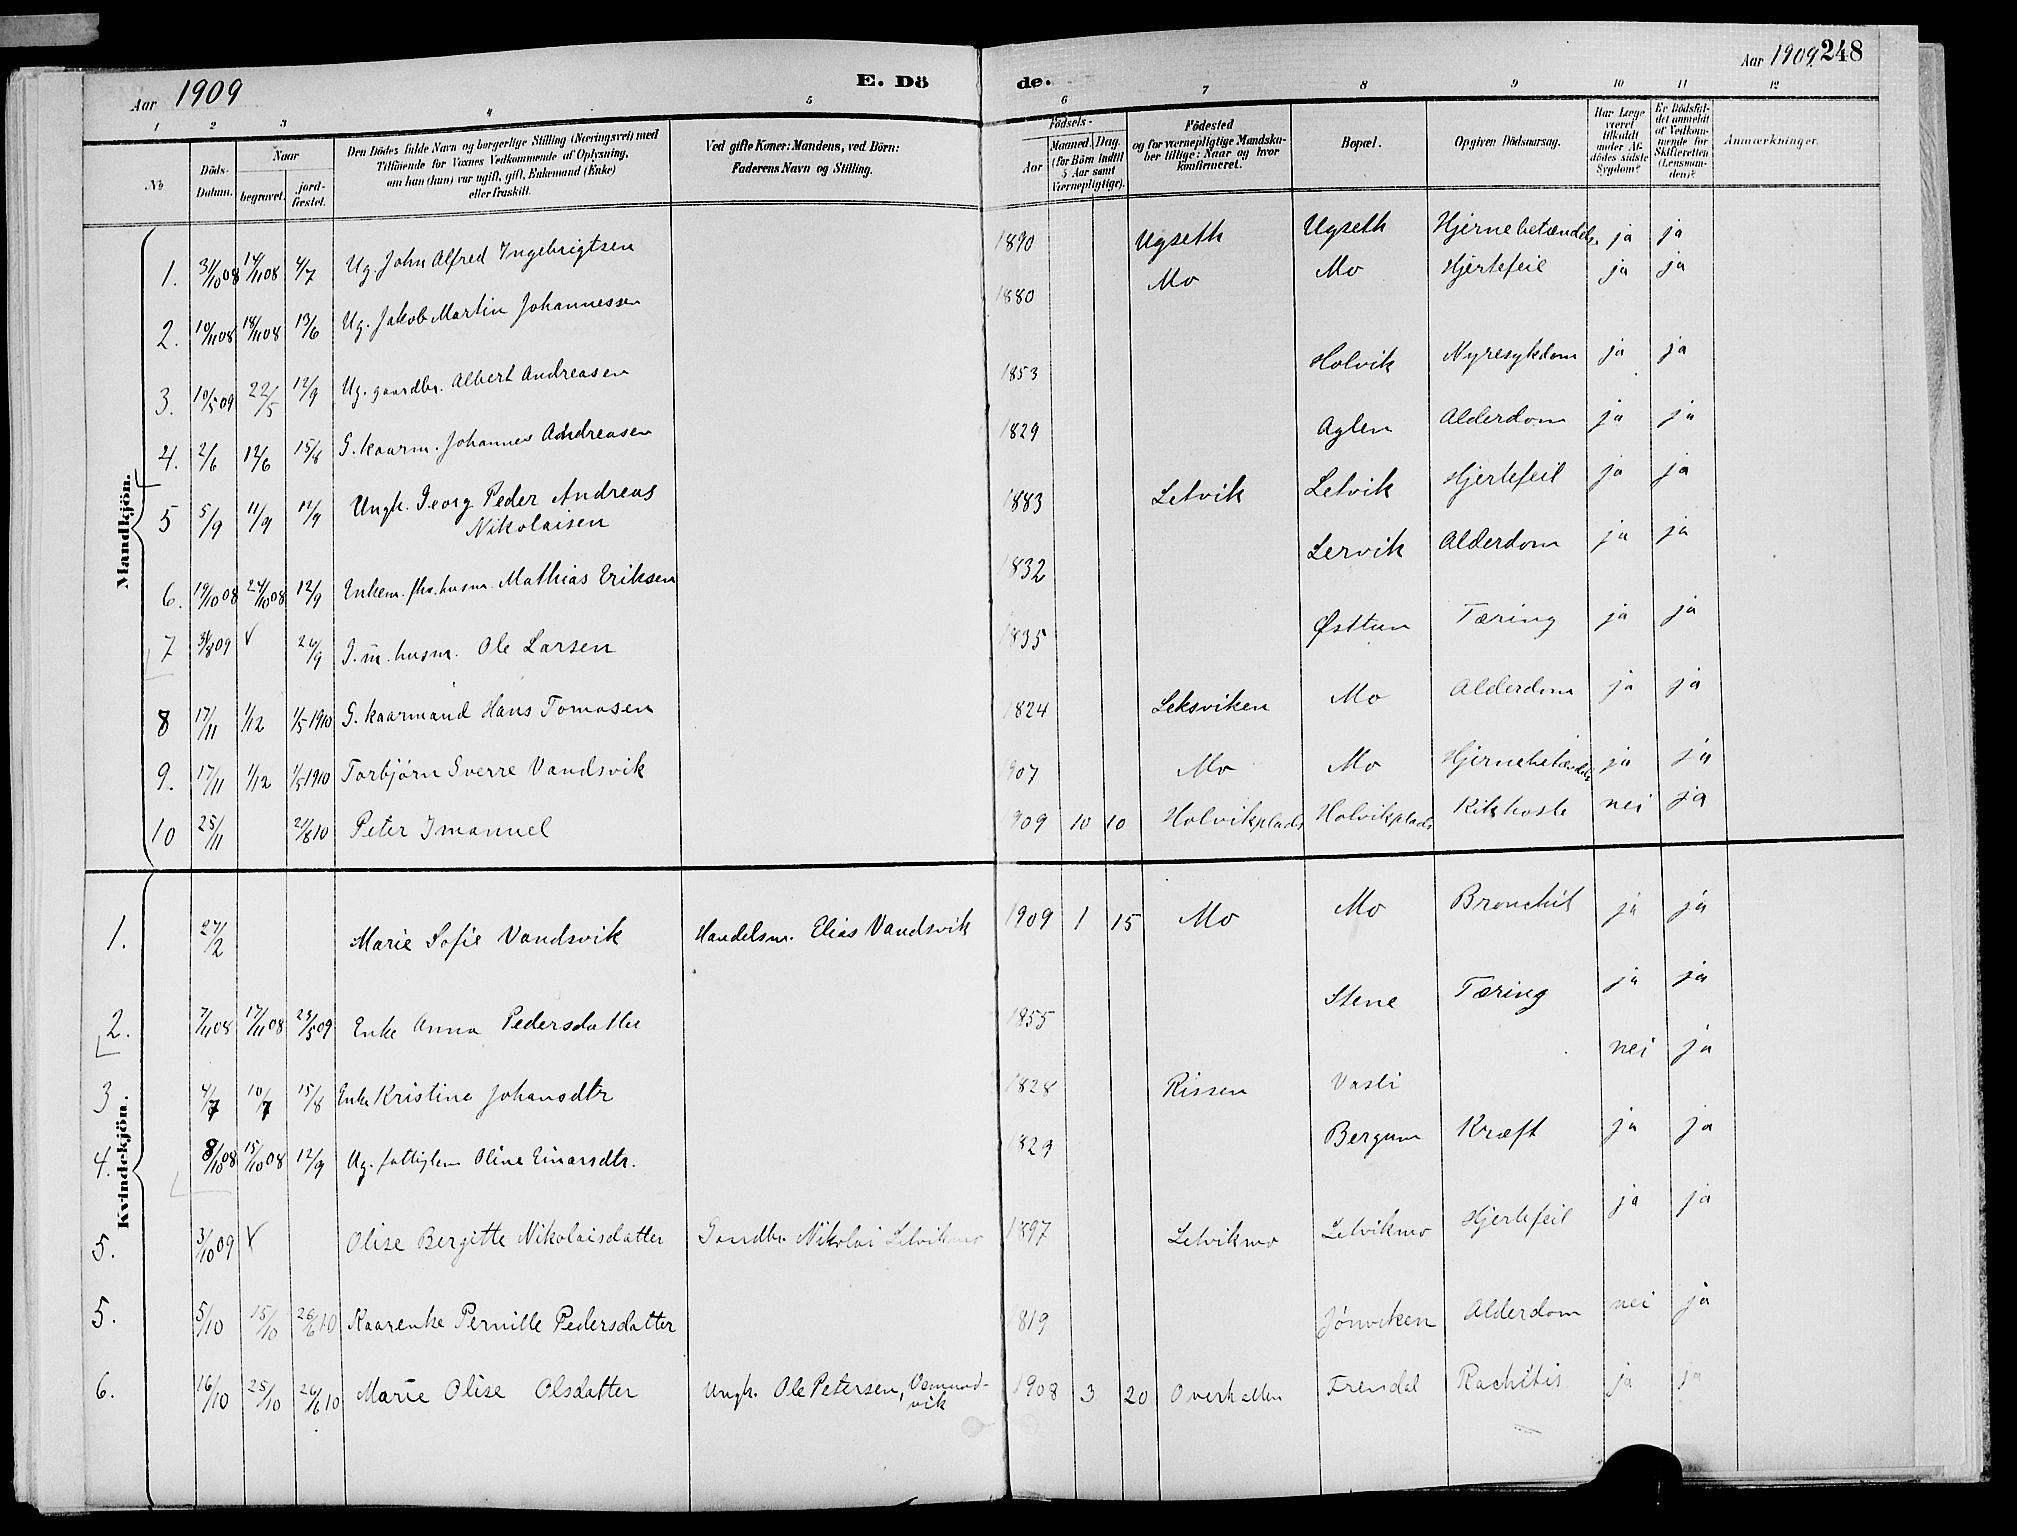 Aar 1909 E. Dö de. Aar 1909. 248
1 2 3 4 5 6 7 8 9 10 11 12
No Döds-Datum. Naar begravet. jord-fæstet. Den Dödes fulde Navn og borgerlige Stilling (Næringsvei) med Tilföiende for Voxnes Vedkommende af Oplysning, om han (hun) var ugift, gift, Enkemand (Enke) eller fraskilt. Ved gifte Koner: Mandens, ved Börn: Faderens Navn og Stilling. Födsels- Aar Maaned. Dag. (for Börn indtil 5 Aar samt Værnepligtige). Födested og for værnepligtige Mandskaber tillige: Naar og hvor konfirmeret. Bopæl. Opgiven Dödsaarsag. Har Læge været tilkaldt under Afdödes sidste Sygdom? Er Dödsfaldet anmeldt af Vedkommende for Skifteretten (Lensmanden)? Anmærkninger.
Mandkjön.
1. 31/10 08 14/11 08 4/7 Ug. John Alfred Ingebrigtsen 1890 Ugseth Ugseth Hjernebetændelse ja ja
2. 10/11 08 18/11 08 13/6 Ug. Jakob Martin Johannessen 1880 Mo Mo Hjertefeil ja ja
3. 10/5 09 22/5 12/9 Ug. gaardbr. Albert Andreasen 1853 Holvik Nyresykdom ja ja
4. 2/6 12/6 15/8 G. kaarm. Johannes Andreasen 1829 Aglen Alderdom ja ja
5 5/9 11/9 12/9 Ungk. Georg Peder Andreas Nikolaisen 1883 Letvik Letvik Hjertefeil ja ja
6. 19/10 08 24/10 08 12/9 Enkem. fhv. husm. Mathias Eriksen 1832 Lervik Alderdom ja ja
7 31/8 09 v 26/9 G. m. husm. Ole Larsen 1835 Østtun Tæring ja ja
8 17/11 1/12 1/5 1910 G. kaarmand Hans Tomasen 1824 Leksviken Mo Alderdom ja ja
9. 17/11 1/12 1/5 1910 Torbjørn Sverre Vandsvik 1907 Mo Mo Hjernebetændelse ja ja
10 25/11 21/8 10 Peter Imanuel 909 10 10 Holvikplads Holvikplads Kikhoste nei ja
Kvindekjön.
1. 27/2 Marie Sofie Vandsvik Handelsm. Elias Vandsvik 1909 1 15 Mo Mo Bronchit ja ja
2. 7/11 08 17/11 08 23/5 09 Enke Anna Pedersdatter 1855 Stene Tæring ja ja
3 4/7 10/7 15/8 Enke Kristine Johansdtr 1828 Rissen Vasli nei ja
4. 8/10 08 15/10 08 12/9 Ug. fattiglem Oline Einarsdtr. 1829 Bergum Kræft ja ja
5. 3/10 09 v Olise Bergitte Nikolaisdatter Gaardbr. Nikolai Letvikmo 1897 Letvikmo Letvikmo Hjertefeil ja ja
5. 5/10 15/10 26/6 10 Kaarenke Pernille Pedersdatter 1819 Jønviken Alderdom nei ja
6. 16/10 25/10 26/6 10 Marie Olise Olsdatter Ungk. Ole Petersen, Osmundvik 1908 3 20 Overhallen Frendal Rachitis ja ja